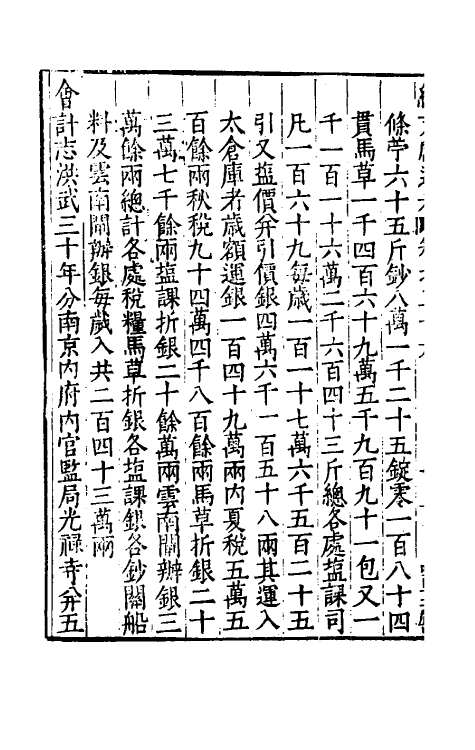 條苧六十五斤鈔八萬一千二十五錠零一百八十四
貫馬草一千四百六十九萬五千九百九十一包又一
千一百一十六萬二千六百四十三斤總各處塩課司
凡一百六十九每歲一百一十七萬六千五百二十五
引又塩價并引價銀四萬六千一百五十八兩其運入
太倉庫者歲額運銀一百四十九萬兩內夏稅五萬五
百餘兩秋稅九十四萬四千八百餘兩馬草折銀二十
三萬七千餘兩塩課折銀二十餘萬兩雲南閘辦銀三
萬餘兩總計各處稅糧馬草折銀各塩課銀各鈔關船
料及雲南閘辦銀每歲入共二百四十三萬兩
會計志洪武三十年分南京內府內官監局光祿寺并五